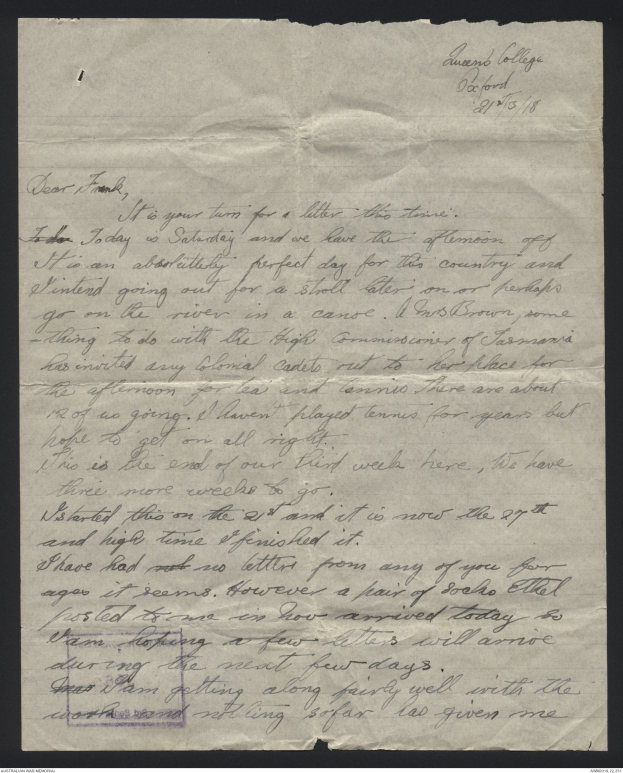 Queens College
Oxford
21st/3/18
Dear Frank,
It is your turn for a letter this time.
To da Today is Saturday and we have the afternoon off
It is an absolutely perfect day for this country and
I intend going out for a stroll later on or perhaps
go on the river in a canoe. A Mrs Brown, some
-thing to do with the High Commissioner of Tasmania
has invited any Colonial cadets out to her place for
the afternoon for tea and tennis there are about
12 of us going. I haven't played tennis for years but
hope to get on all right.
This is the end of our third week here, We have
three more weeks to go.
I started this on the 21st and it is now the 27th
and high time I finished it.
I have had not no letters from any of you for
ages it seems. However a pair of socks Ethel
posted to me in Nov arrived today so
I am hoping a few letters will arrive
during the next few days.
I am getting along fairly well with the
work and nothing sofar has given me
AUSTRALIAN WAR MEMORIAL